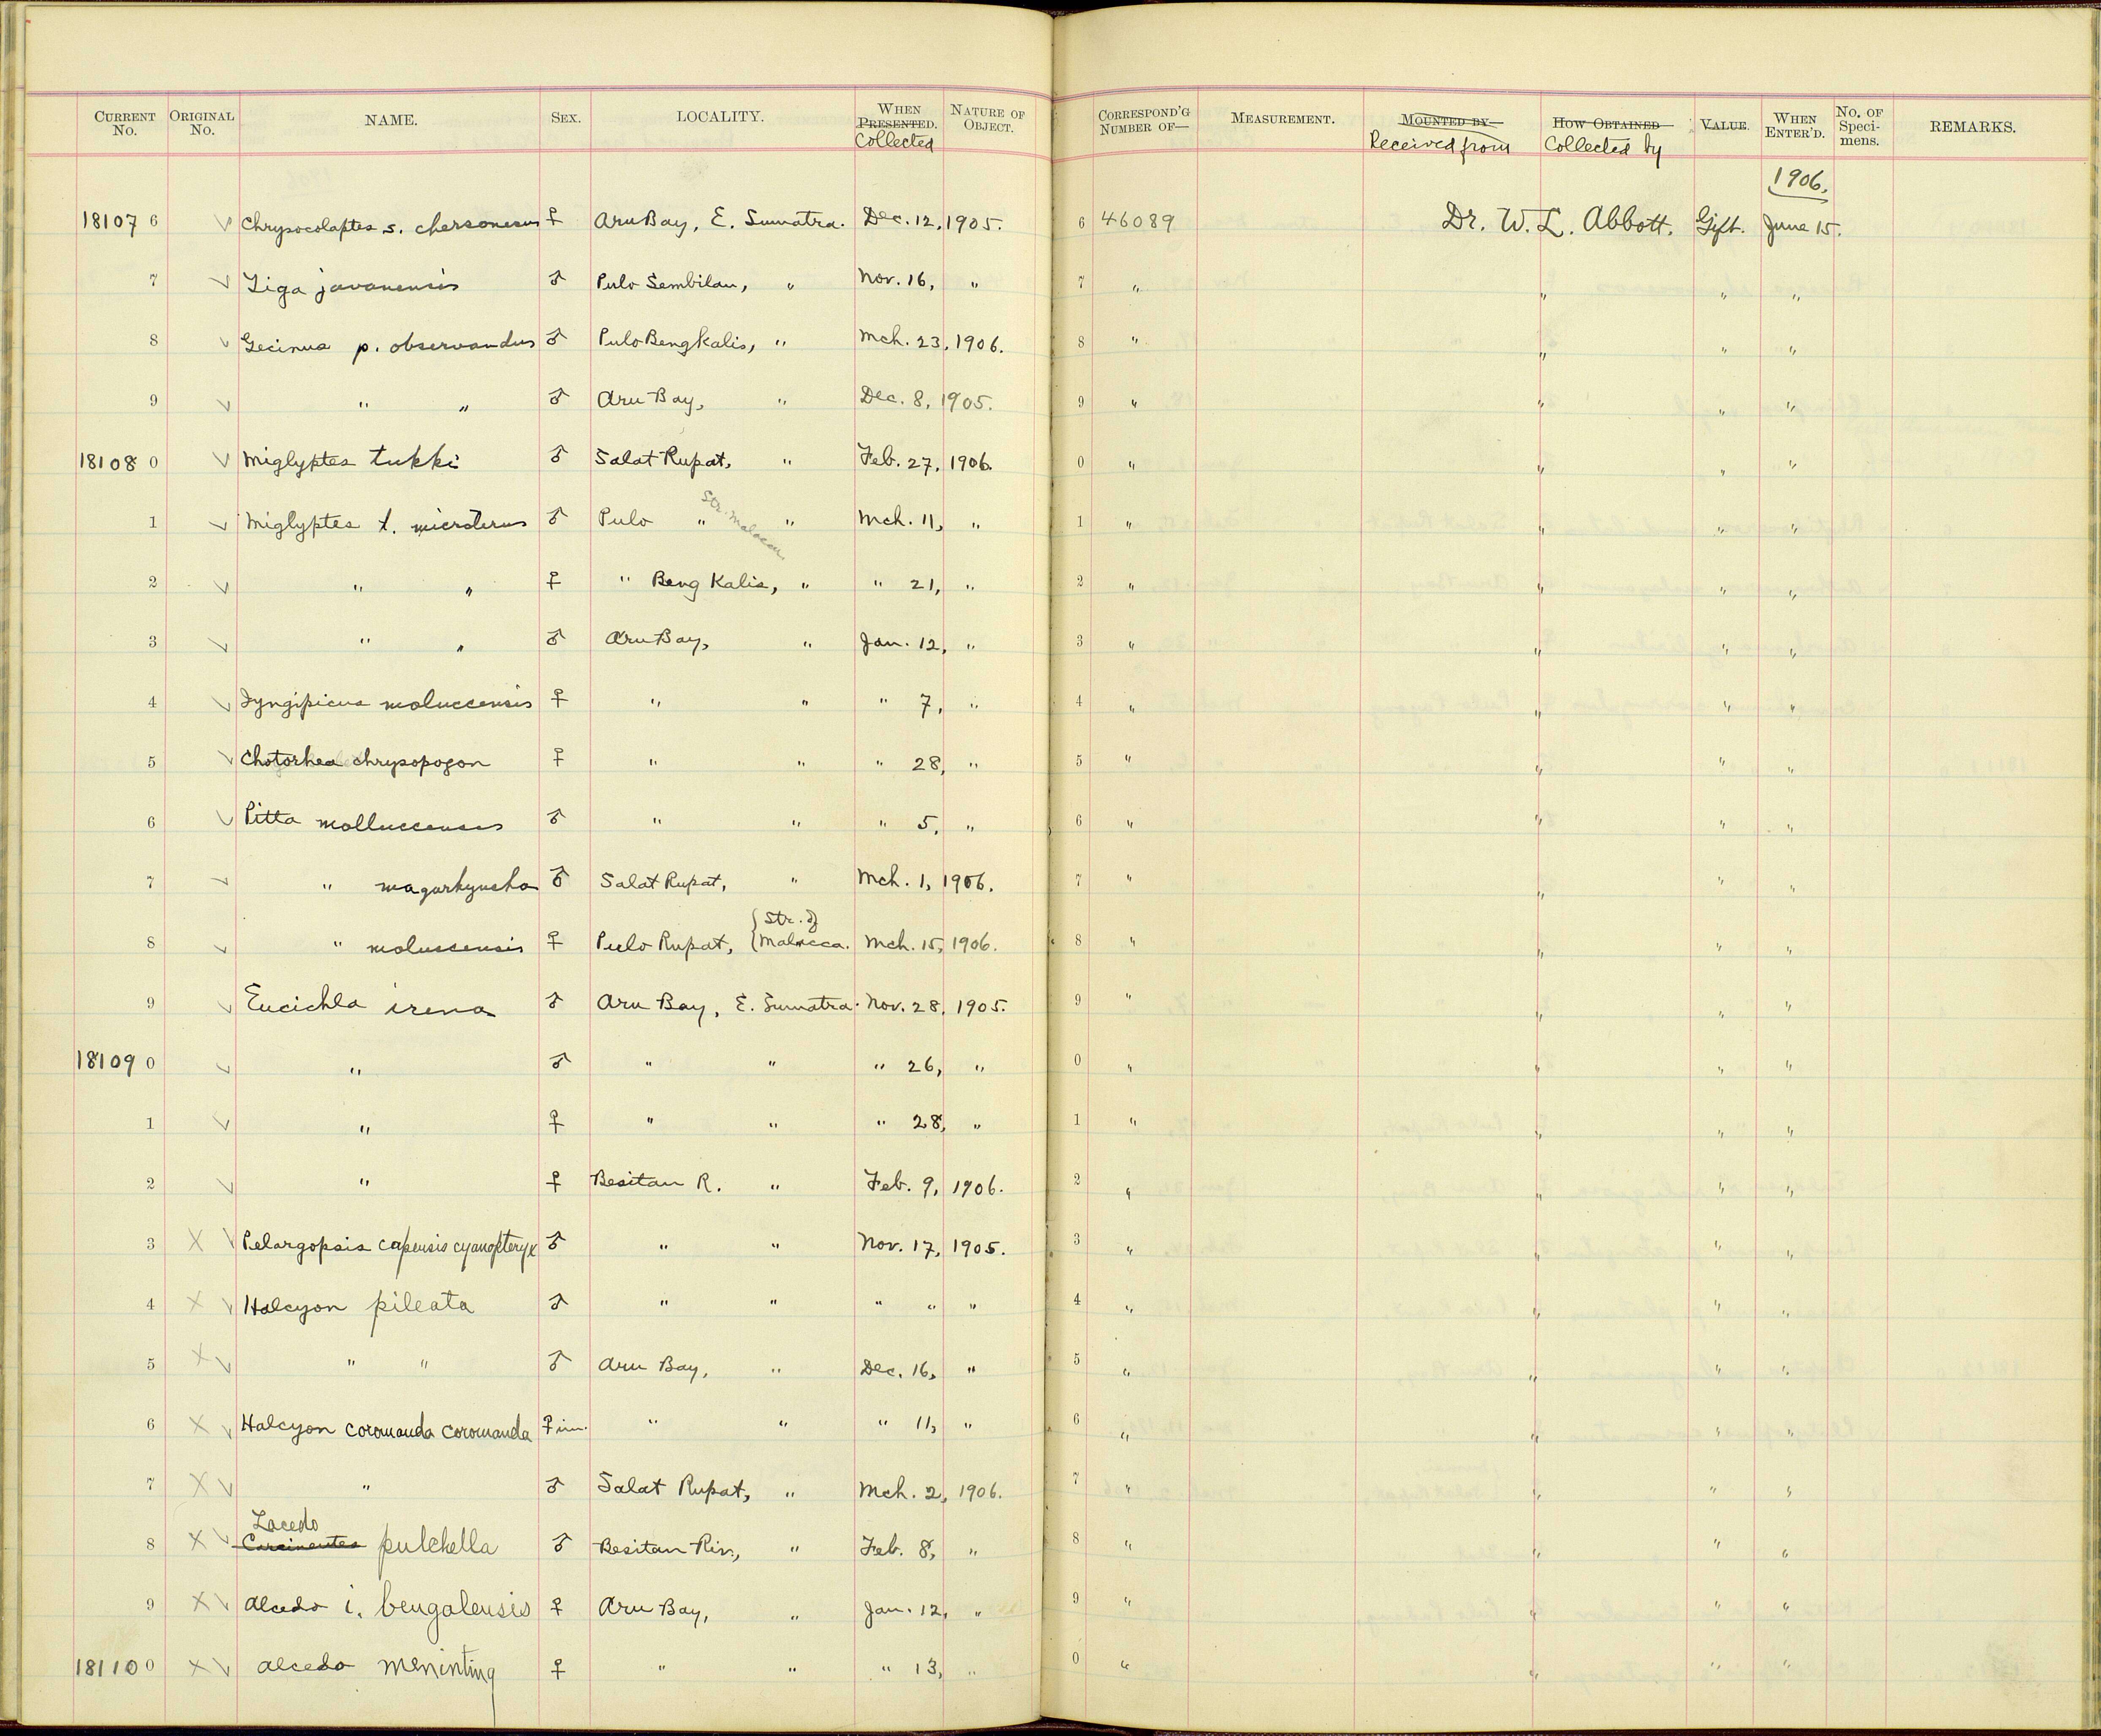 CURRENT No. ORIGINAL No. NAME. SEX. LOCALITY. WHEN PRESENTED. Collected NATURE OF OBJECT. CORRESPOND'G NUMBER OF— MEASUREMENT. MOUNTED BY— Received from HOW OBTAINED Collected by VALUE. WHEN ENTER'D. No. OF Speci-mens. REMARKS.
1906.
18107 6 ✓ Chrysocolaptes s. chersonesus ♀ Aru Bay, E. Sumatra. Dec. 12, 1905. 6 46089 Dr. W. L. Abbott. Gift. June 15.
7 ✓ Tiga javanensis ♂ Pulo Sembilan, " Nov. 16, " 7 " " " "
8 ✓ Gecinus p. observandus ♂ Pulo Bengkalis, " Mch. 23, 1906. 8 " " " "
9 ✓ " " ♂ Aru Bay, " Dec. 8, 1905. 9 " " " "
18108 0 ✓ Miglyptes tukki ♂ Salat Rupat, " Feb. 27, 1906. 0 " " " "
Str. Malacca
1 ✓ Miglyptes t. microterus ♂ Pulo " " Mch. 11, " 1 " " " "
2 ✓ " " ♀ " Beng Kalis, " " 21, " 2 " " " "
3 ✓ " " ♂ Aru Bay, " Jan. 12, " 3 " " " "
4 ✓ Iyngipicus moluccensis ♀ " " " 7, " 4 " " " "
5 ✓ Chotorhea chrysopogon ♀ " " " 28, " 5 " " " "
6 ✓ Pitta molluccensis ♂ " " " 5, " 6 " " " "
7 ✓ " magarhyncha ♂ Salat Rupat, " Mch. 1, 1906. 7 " " " "
8 ✓ " moluccensis ♀ Pulo Rupat, { Str. of Malacca. Mch. 15, 1906. 8 " " " "
9 ✓ Eucichla irena ♂ Aru Bay, E. Sumatra. Nov. 28, 1905. 9 " " " "
18109 0 ✓ " ♂ " " " 26, " 0 " " " "
1 ✓ " ♀ " " " 28, " 1 " " " "
2 ✓ " ♀ Besitan R. " Feb. 9, 1906. 2 " " " "
3 X ✓ Pelargopsis capensis cyanopteryx ♂ " " Nov. 17, 1905. 3 " " " "
4 X ✓ Halcyon pileata ♂ " " " " " 4 " " " "
5 X ✓ " " ♂ Aru Bay, " Dec. 16, " 5 " " " "
6 X ✓ Halcyon coromanda coromanda ♀ im. " " " 11, " 6 " " " "
7 X ✓ " ♂ Salat Rupat, " Mch. 2, 1906. 7 " " " "
Lacedo
8 X ✓ Carcineutes pulchella ♂ Besitan Riv., " Feb. 8, " 8 " " " "
9 X ✓ Alcedo i. bengalensis ♀ Aru Bay, " Jan. 12, " 9 " " " "
18110 0 X ✓ Alcedo meninting ♀ " " " 13, " 0 " " " "